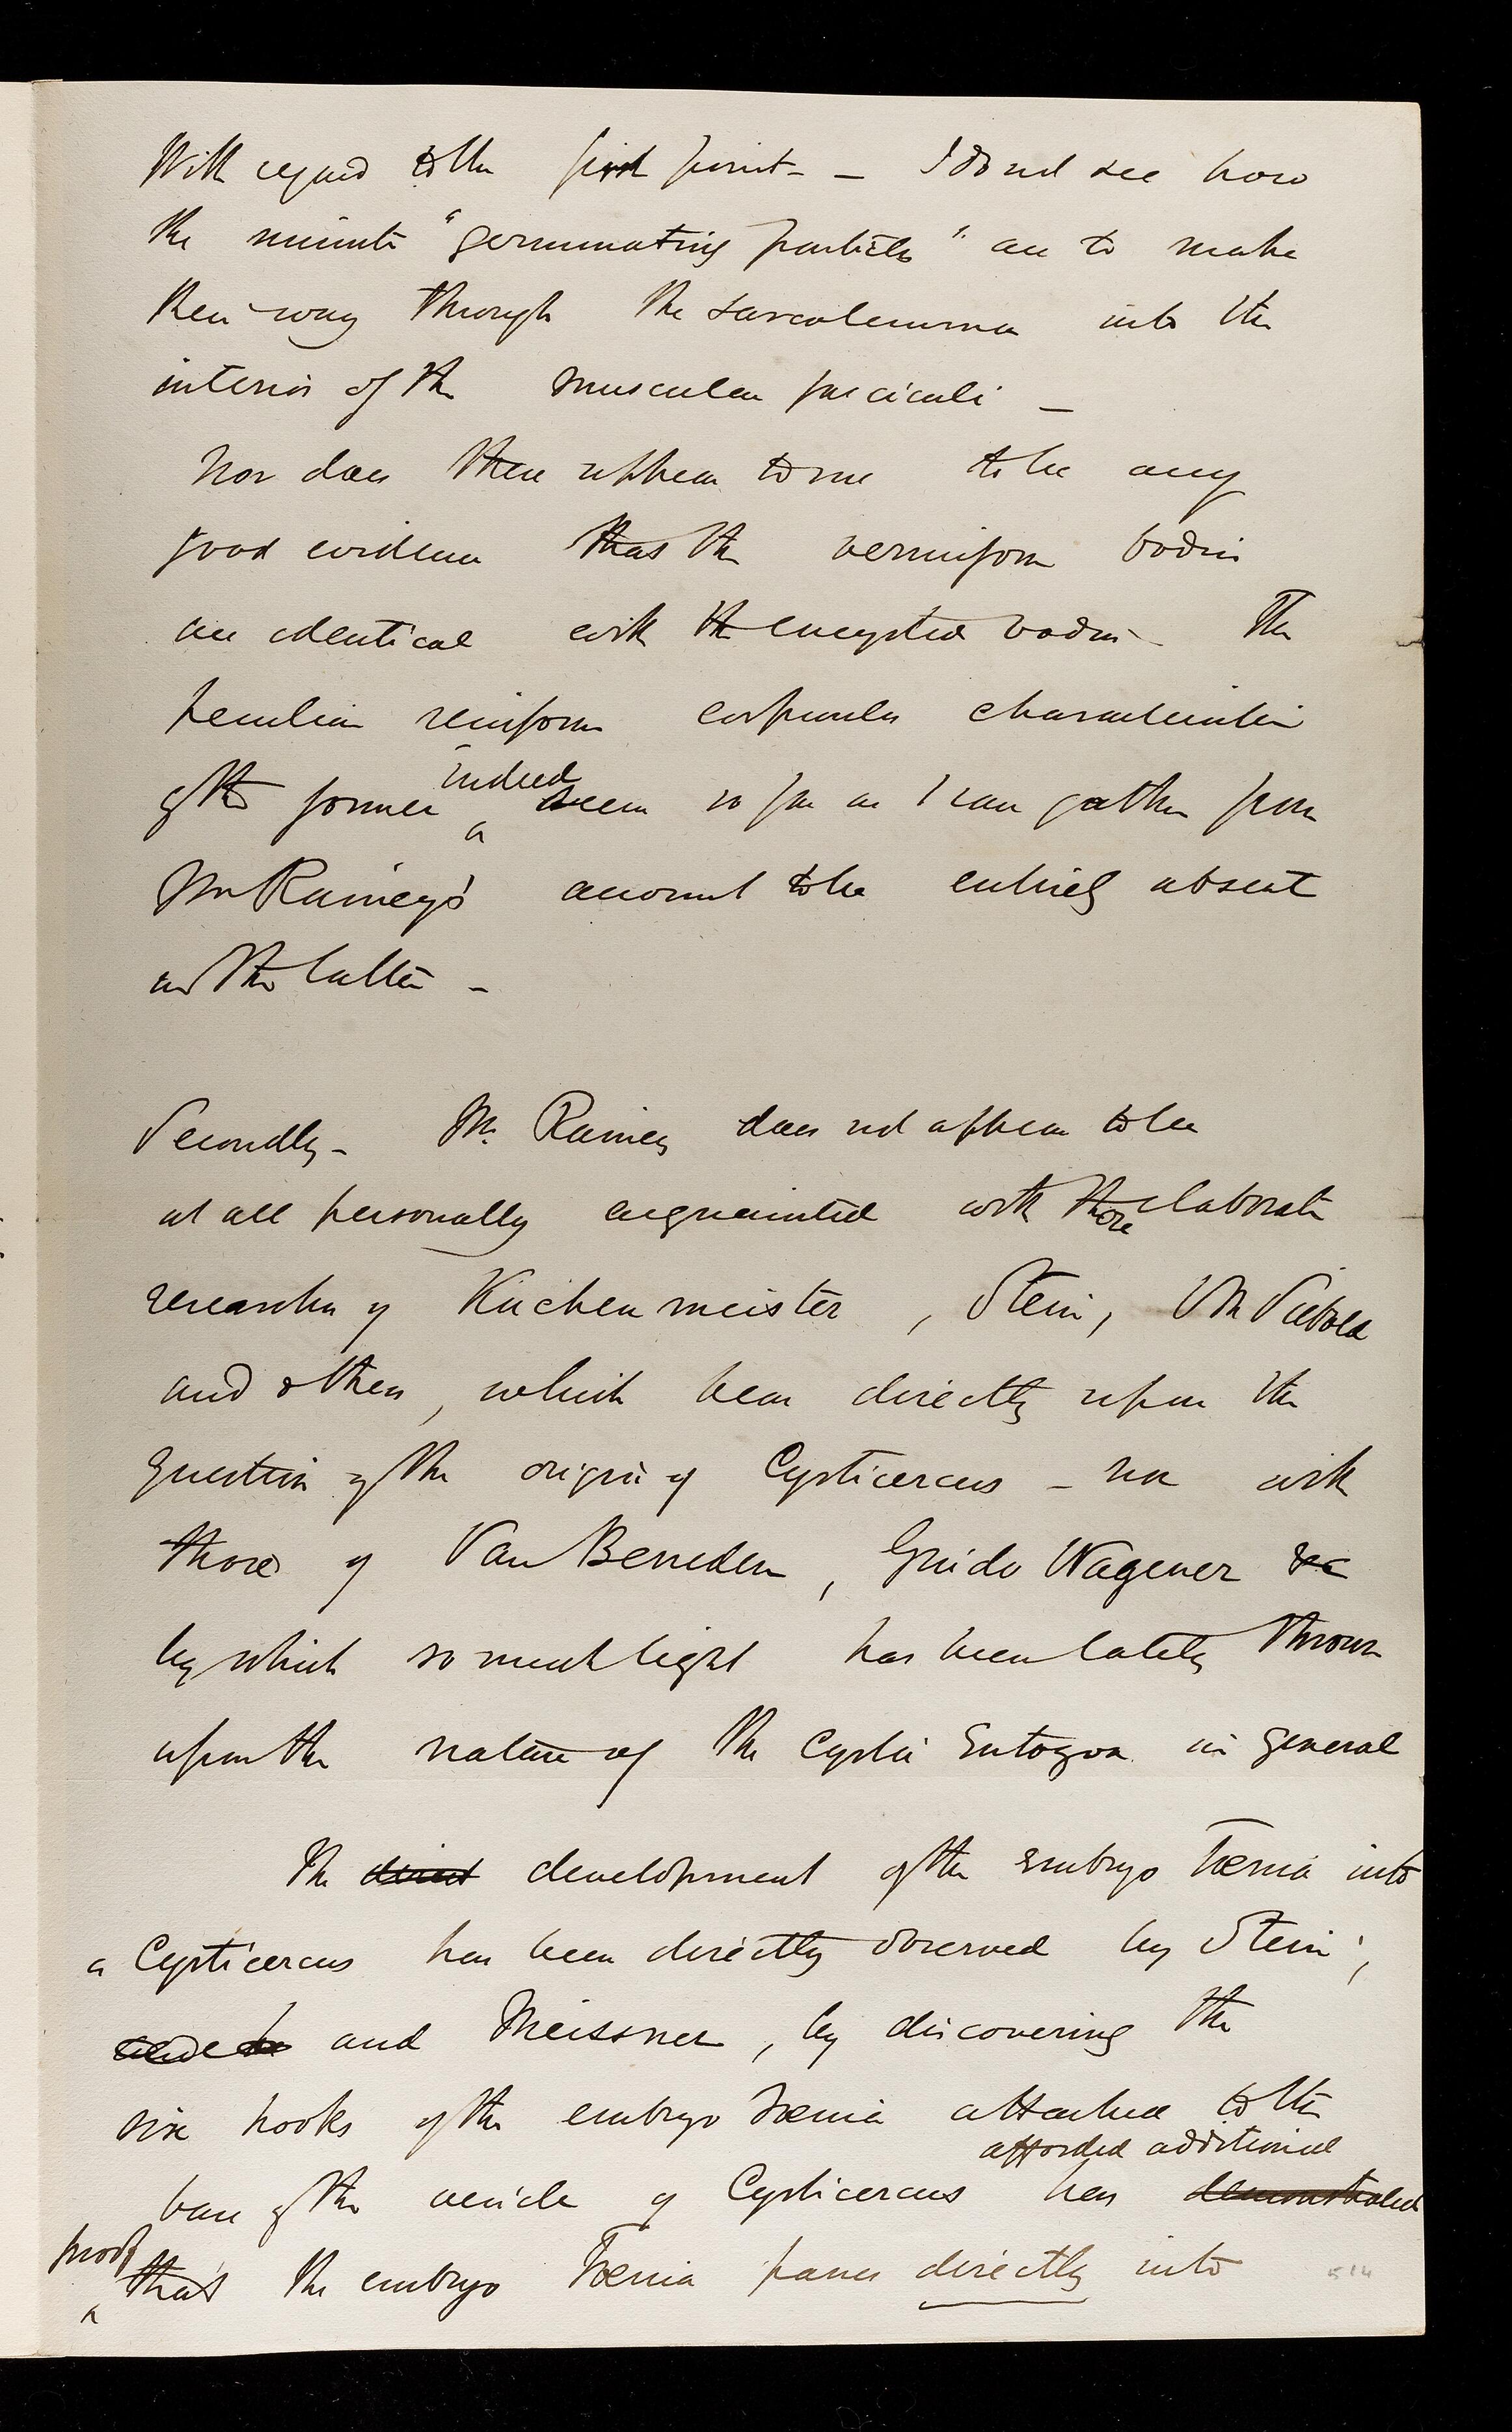 With regard to the first point - I do not see how
the minute "germinating particles" are to make
their way through the sarcolemma into the
interior of the muscular fasciculi -
Nor does there appear to me to be any
good evidence that the vermiform bodies
are identical with the encysted bodies - The
peculiar reniform corpuscles characteristic
indeed
of the former seem so far as I can gather from
Mr Rainey's account to be entirely absent
in the latter -
Secondly - Mr. Rainey does not appear to be
at all personally acquainted with those elaborate
researches of Küchenmeister, Stein, Von Siebold
and others, which bear directly upon the
question of the origin of Cysticercus - nor with
those of Van Beneden, Guido Wagener &c
by which so much light has been lately thrown
upon the nature of the Cystic Entozoa in general
The direct development of the embryo Tænia into
a Cysticercus has been directly observed by Stein;
and Meissner, by discovering the
six hooks of the embryo Tænia attached to the
afforded additional
base of the vesicle of Cysticercus has demonstrated
proof
that the embryo Tænia passes directly into
514